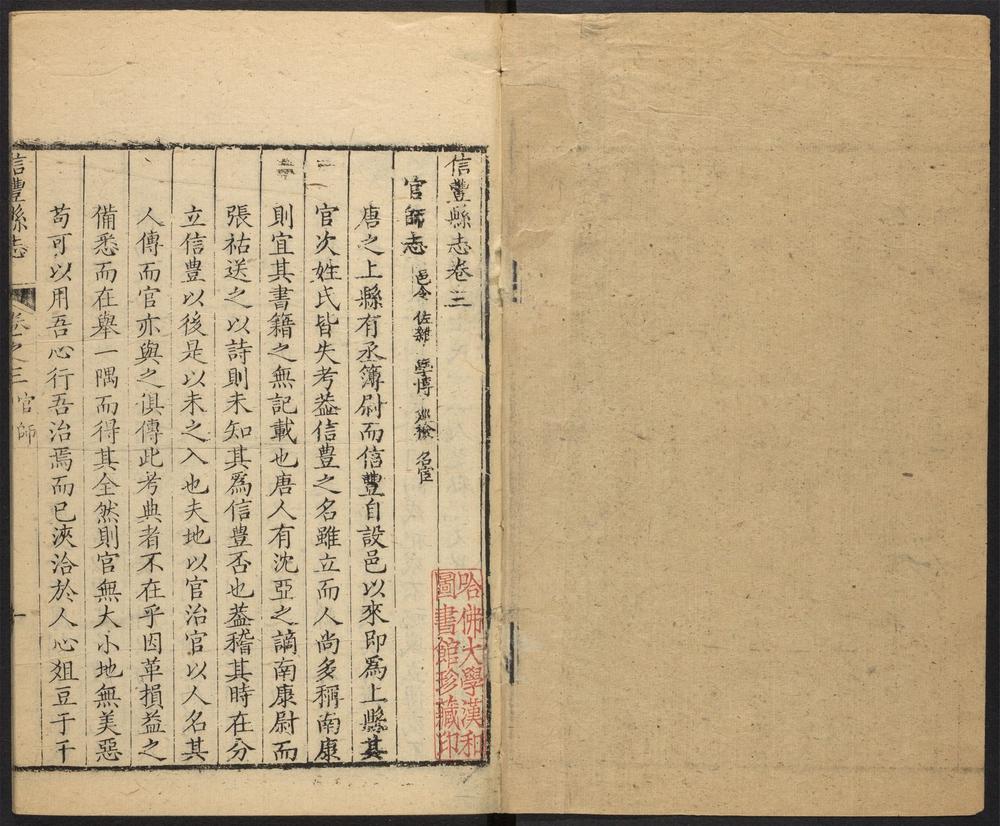 信豐縣志卷三
官師志 邑令 佐雜 學博 巡檢 名宦
唐之上縣有丞簿尉而信豐自設邑以來即爲上縣其
官次姓氏皆失考葢信豊之名雖立而人尚多稱南康
則宜其書籍之無記載也唐人有沈亞之謫南康尉而
張祜送之以詩則未知其爲信豊否也葢稽其時在分
立信豊以後是以未之入也夫地以官治官以人名其
人傳而官亦與之俱傳此考典者不在乎因革損益之
備悉而在舉一隅而得其全然則官無大小地無美惡
苟可以用吾心行吾治焉而已浹洽於人心狙豆于千
信豐縣志 卷之三 官師 一
哈佛大學漢和
圖書館珍藏印